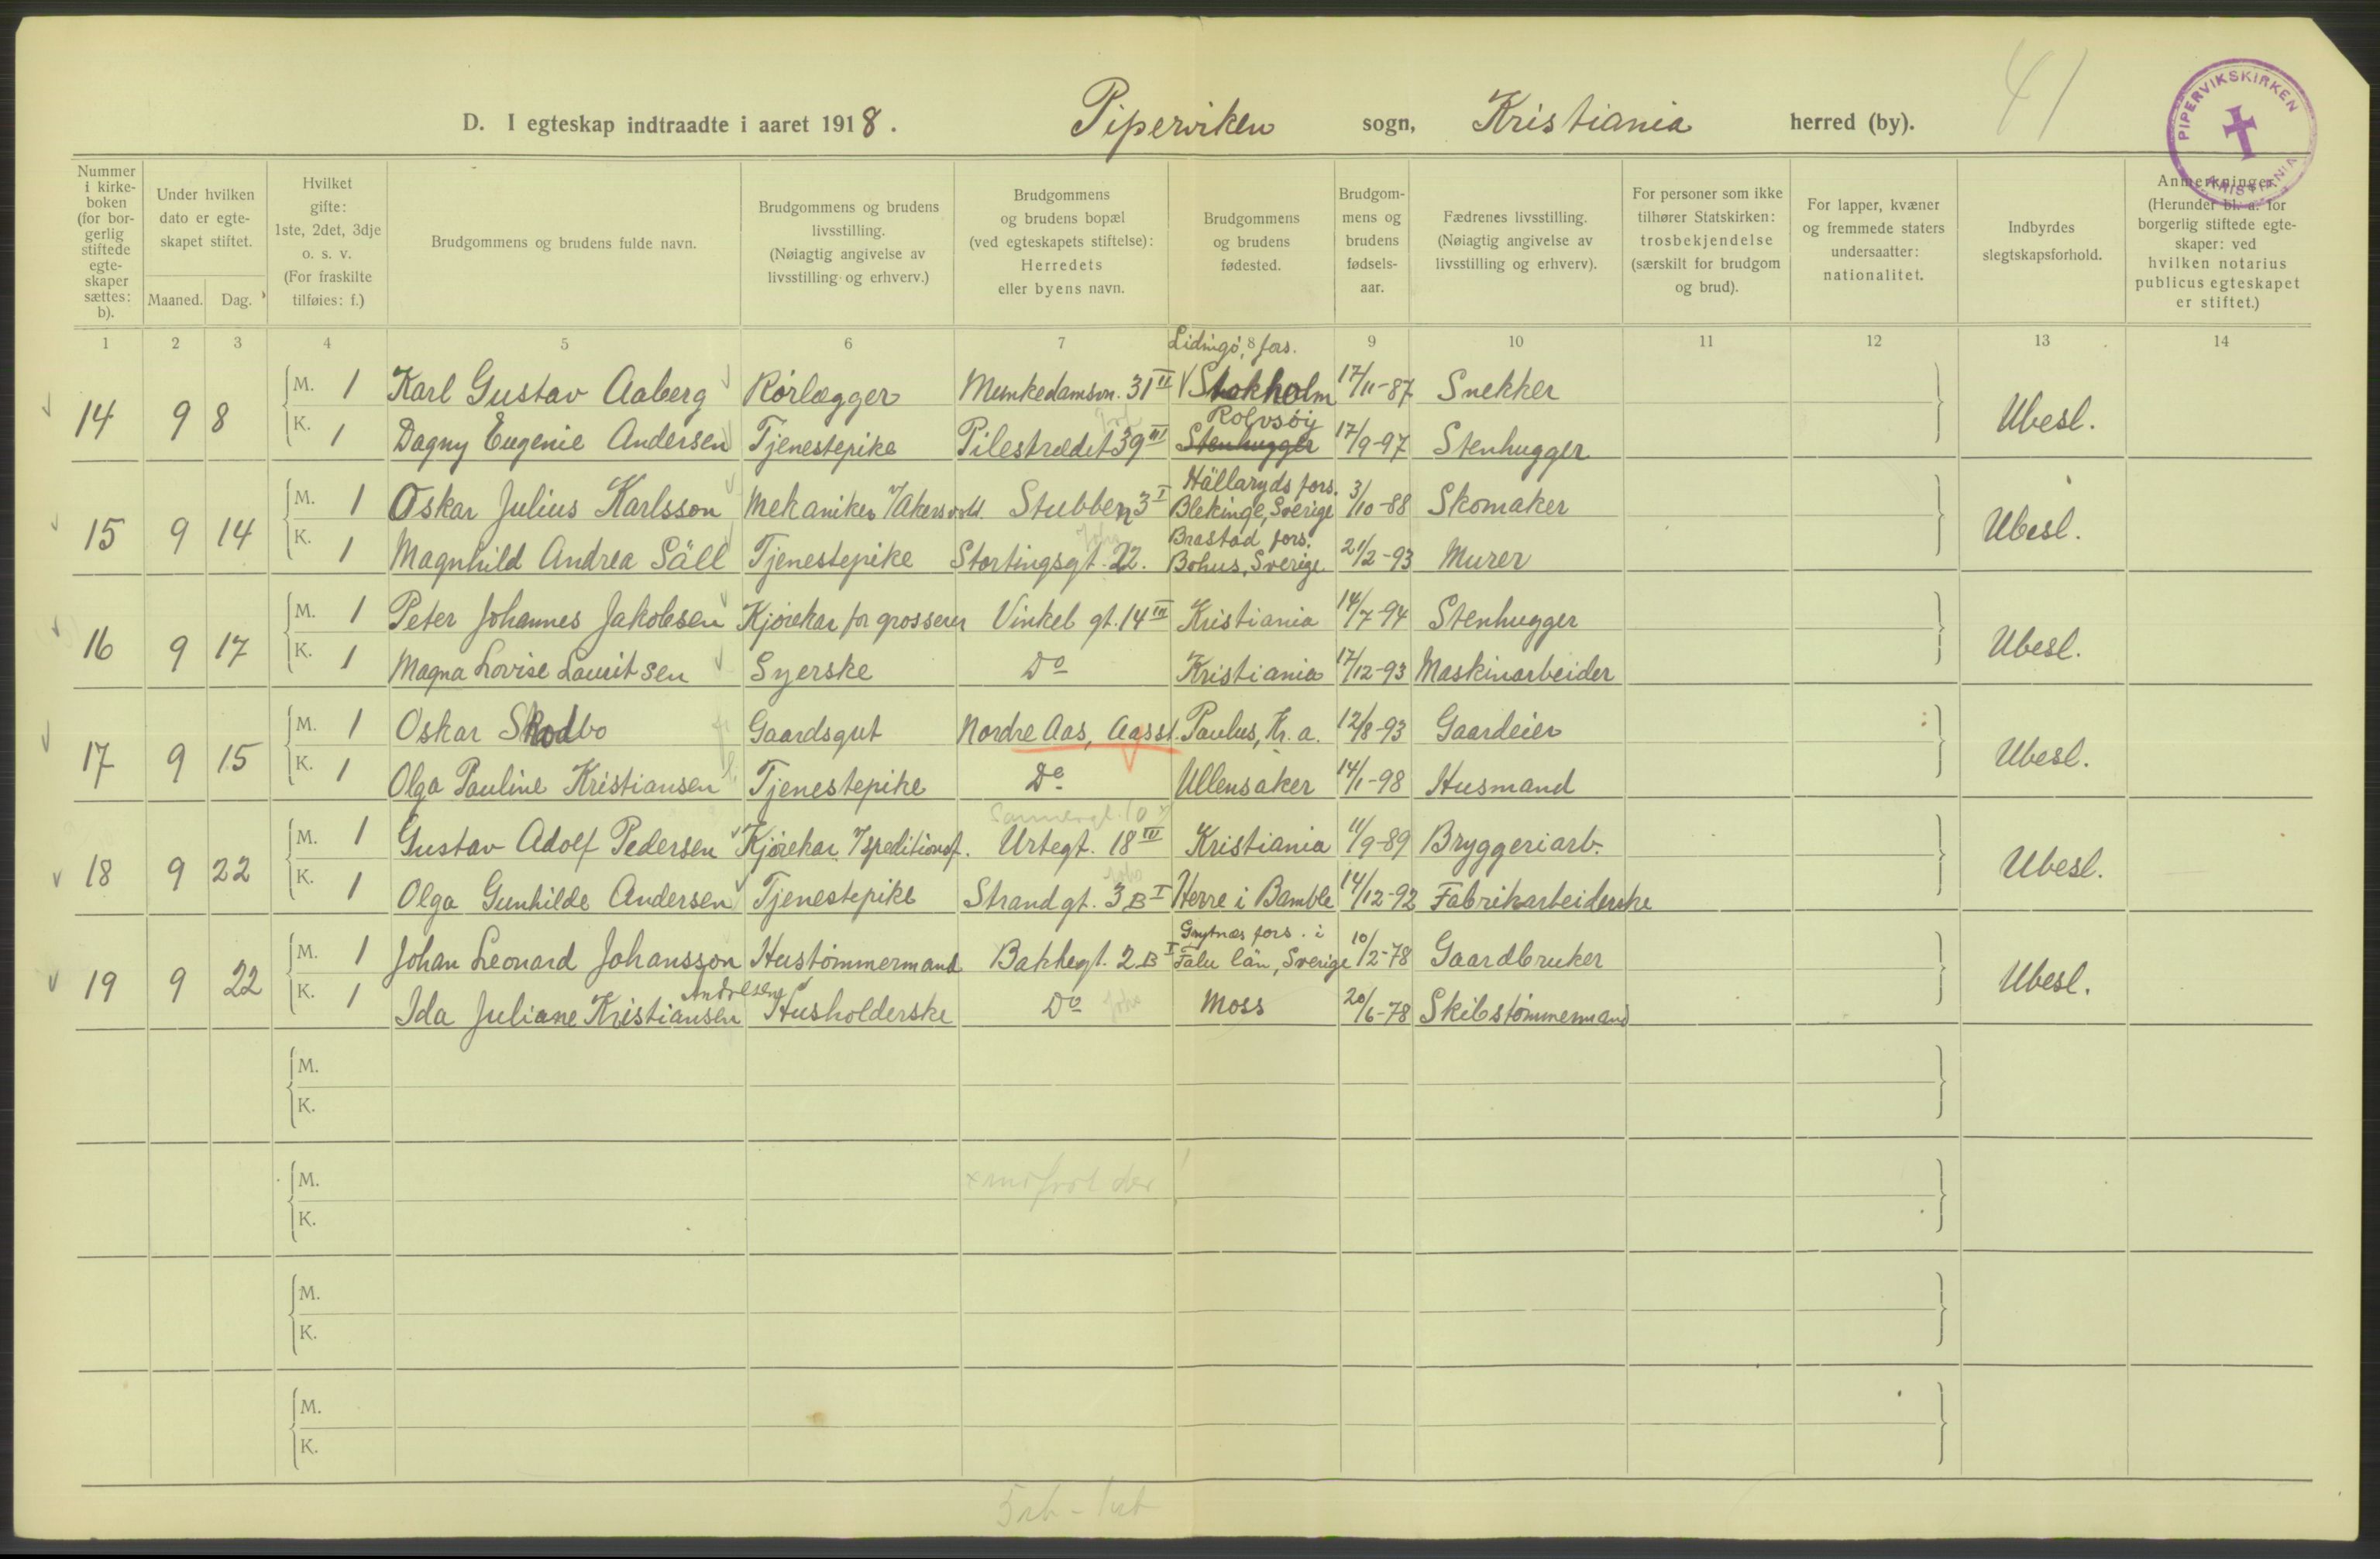 D. I egteskap indtraadte i aaret 1918. Piperviken sogn, Kristiania herred (by). 41
PIPERVIKSKIRKEN KRISTIANIA
Nummer i kirkeboken (for borgerlig stiftede egteskaper sættes: b).
Under hvilken dato er egteskapet stiftet.
Maaned. Dag.
Hvilket gifte: 1ste, 2det, 3dje o. s. v. (For fraskilte tilføies: f.)
Brudgommens og brudens fulde navn.
Brudgommens og brudens livsstilling. (Nøiagtig angivelse av livsstilling og erhverv.)
Brudgommens og brudens bopæl (ved egteskapets stiftelse): Herredets eller byens navn.
Brudgommens og brudens fødested.
Brudgommens og brudens fødselsaar.
Fædrenes livsstilling. (Nøiagtig angivelse av livsstilling og erhverv).
For personer som ikke tilhører Statskirken: trosbekjendelse (særskilt for brudgom og brud).
For lapper, kvæner og fremmede staters undersaatter: nationalitet.
Indbyrdes slegtskapsforhold.
Anmerkninger. (Herunder bl. a. for borgerlig stiftede egteskaper: ved hvilken notarius publicus egteskapet er stiftet.)
1 2 3 4 5 6 7 8 9 10 11 12 13 14
Lidingö, fors.
14 9 8 M. 1 Karl Gustav Aaberg Rørlægger Munkedamsvn. 31 II Stokholm 17/11-87 Snekker Ubesl.
Rolvsøy
K. 1 Dagny Eugenie Andersen Tjenestepike Pilestrædet 39 III Stenhugger 17/9-97 Stenhugger
Hällaryds fors.
15 9 14 M. 1 Oskar Julius Karlsson Mekaniker v/Akers v.old. Stubben 3 I Blekinge, Sverige 3/10-88 Skomaker Ubesl.
Brastad fors.
K. 1 Magnhild Andrea Säll Tjenestepike Stortingsgt. 22. Bohus, Sverige 21/2-93 Murer
16 9 17 M. 1 Peter Johannes Jakobsen Kjørekar for grosserer Vinkel gt. 14 III Kristiania 14/7-94 Stenhugger Ubesl.
K. 1 Magna Lovise Lauritsen Syerske Do Kristiania 17/12-93 Maskinarbeider
17 9 15 M. 1 Oskar Skodbo Gaardsgut Nordre Aas, Aasst. Paulus, Kr.a. 12/8-93 Gaardeier Ubesl.
K. 1 Olga Pauline Kristiansen Tjenestepike Do Ullensaker 14/1-98 Husmand
18 9 22 M. 1 Gustav Adolf Pedersen Kjørekar v/speditionsf. Urtegt. 18 IV Kristiania 11/9-89 Bryggeriarb. Ubesl.
K. 1 Olga Gunhilde Andersen Tjenestepike Strandgt. 3 B I Herre i Bamble 14/12-92 Fabrikarbeiderske
Grytnæs fors. i
19 9 22 M. 1 Johan Leonard Johansson Hustømmermand Bakkegt. 2 B I Falu län, Sverige 10/2-78 Gaardbruker Ubesl.
Andresen
K. 1 Ida Juliane Kristiansen Husholderske Do Moss 20/6-78 Skibstømmermand
M.
K.
M.
K.
M.
K.
M.
K.